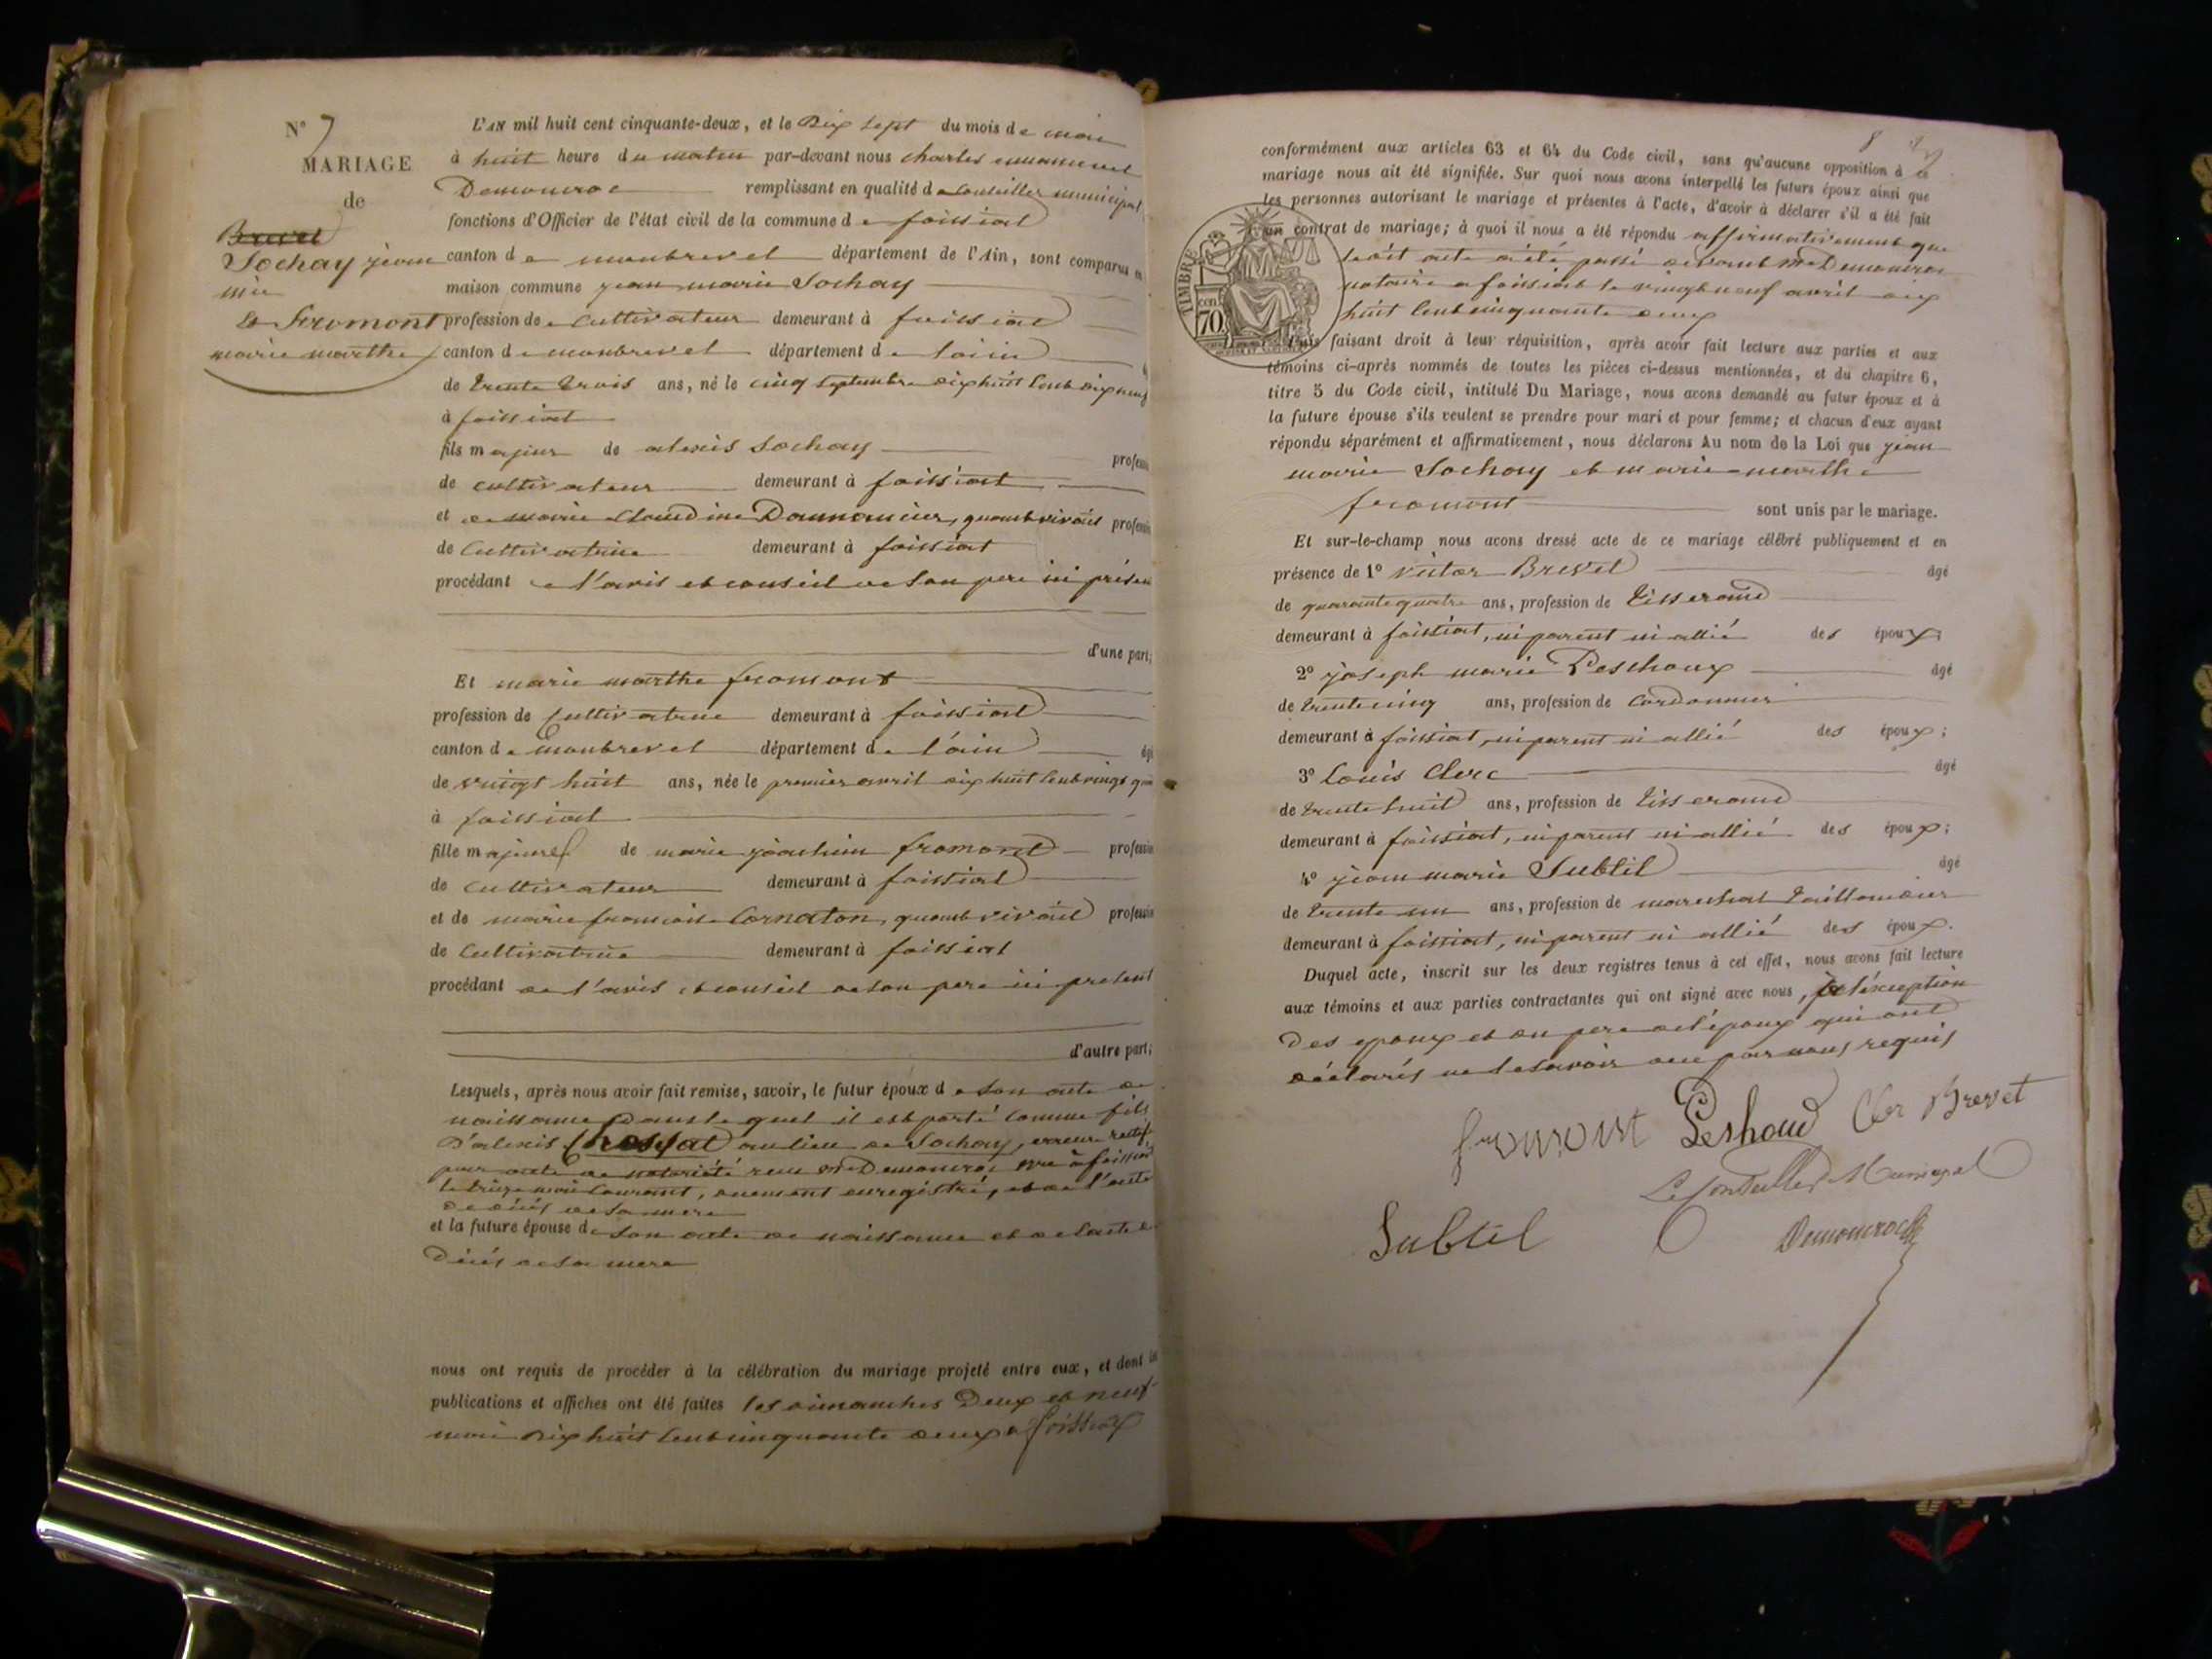 N° 7
MARIAGE
de
Brevet
Sochay jean
mie
et Fromont
marie marthe
L'AN mil huit cent cinquante-deux, et le Dix sept du mois de mai
à huit heure du matin par-devant nous charles emmanuel
Demoncroc remplissant en qualité de Conseiller municipal
fonctions d'Officier de l'état civil de la commune de foissiat
canton de montrevel département de l'Ain, sont comparus en
maison commune jean marie Sochay
profession de cultivateur demeurant à foissiat
canton de montrevel département de l'ain
de trente trois ans, né le cinq septembre dix huit cent dix neuf
à foissiat
fils majeur de alexis Sochay professi
de cultivateur demeurant à foissiat
et de marie claudine quand vivait professi
de Cultivatrice demeurant à foissiat
procédant de l'avis et conseil de son pere ici présen
d'une part;
Et marie marthe fromont
profession de Cultivatrice demeurant à foissiat
canton de montrevel département de l'ain âgé
de vingt huit ans, née le premier avril dix huit cent vingt
à foissiat
fille majeure de marie joachim fromont professi
de Cultivateur demeurant à foissiat
et de marie francoise Cornaton, quand vivait professi
de Cultivatrice demeurant à foissiat
procédant de l'avis et conseil de son pere ici present
d'autre part;
Lesquels, après nous avoir fait remise, savoir, le futur époux de son acte de
naissance Dans le quel il est porté comme fils
D'alexis au lieu de Sochay, erreur
par acte de notoriété recu Me Demoncroc à foissiat
le treize mai Courant, duement enregistré, et de l'acte
de décés de sa mere
et la future épouse de son acte de naissance et de l'acte de
Décés de sa mere
nous ont requis de procéder à la célébration du mariage projeté entre eux, et dont les
publications et affiches ont été faites les dimanches Deux et neuf
mai Dix huit Cent cinquante deux a foissiat
8
conformément aux articles 63 et 64 du Code civil, sans qu'aucune opposition à ce
mariage nous ait été signifiée. Sur quoi nous avons interpellé les futurs époux ainsi que
les personnes autorisant le mariage et présentes à l'acte, d'avoir à déclarer s'il a été fait
un contrat de mariage; à quoi il nous a été répondu affirmativement que
le dit acte a été passé devant Me Demoncroc
notaire a foissiat le vingt neuf avril dix
huit Cent cinquante deux
TIMBRE
70 cen
Puis faisant droit à leur réquisition, après avoir fait lecture aux parties et aux
témoins ci-après nommés de toutes les pièces ci-dessus mentionnées, et du chapitre 6,
titre 5 du Code civil, intitulé Du Mariage, nous avons demandé au futur époux et à
la future épouse s'ils veulent se prendre pour mari et pour femme; et chacun d'eux ayant
répondu séparément et affirmativement, nous déclarons Au nom de la Loi que jean
marie Sochay et marie marthe
fromont sont unis par le mariage.
Et sur-le-champ nous avons dressé acte de ce mariage célébré publiquement et en
présence de 1° victor Brevet âgé
de quarante quatre ans, profession de Tisserand
demeurant à foissiat, ni parent ni allié des époux;
2° joseph marie Peschoux âgé
de trente cinq ans, profession de Cordonnier
demeurant à foissiat, ni parent ni allié des époux;
3° Louis Clerc âgé
de trente huit ans, profession de Tisserand
demeurant à foissiat, ni parent ni allié des époux;
4° jean marie Subtil âgé
de trente un ans, profession de marechal Taillandier
demeurant à foissiat, ni parent ni allié des époux.
Duquel acte, inscrit sur les deux registres tenus à cet effet, nous avons fait lecture
aux témoins et aux parties contractantes qui ont signé avec nous, a l'exception
Des epoux et du pere de l'époux qui ont
déclarés ne le savoir de ce par nous requis
fromont Peshoud Cler Brevet
Le Conseiller Municipal
Subtil Demoncroc